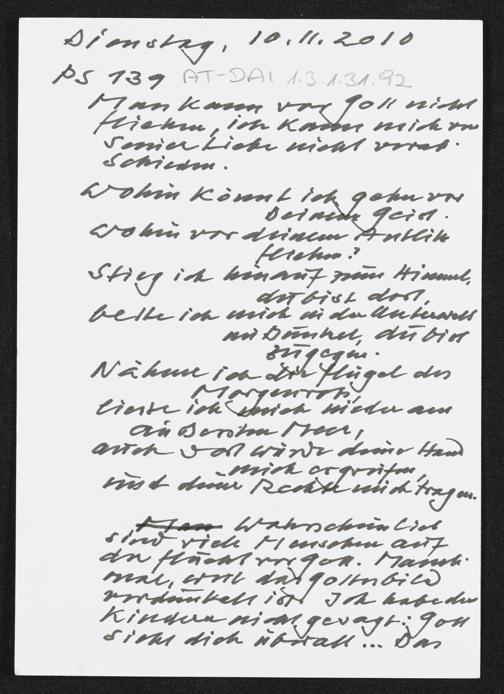 Dienstag, 10.11.2010
PS 139 AT-DAI 1.3.1.31.92
Man kann vor Gott nicht
fliehen, ich kann mich vor
seiner Liebe nicht verab-
schieden.
Wohin könnt ich gehn vor
Deinem Geist.
Wohin vor deinem Antlitz
fliehen?
Stieg ich hinauf zum Himmel,
du bist dort,
bette ich mich in der Unterwelt
du bist
zugegen.
Nähme ich die Flügel des
Morgenrots,
liesse ich mich nieder am
äußersten Meer,
auch dort würde deine Hand
mich ergreifen,
und deine Rechte mich tragen.
Man Wahrscheinlich
sind viele Menschen auf
der Flucht vor Gott. Manch-
mal, weil das Gottesbild
verdunkelt ist. Ich habe den
Kindern nicht gesagt: Gott
sieht dich überall... Das